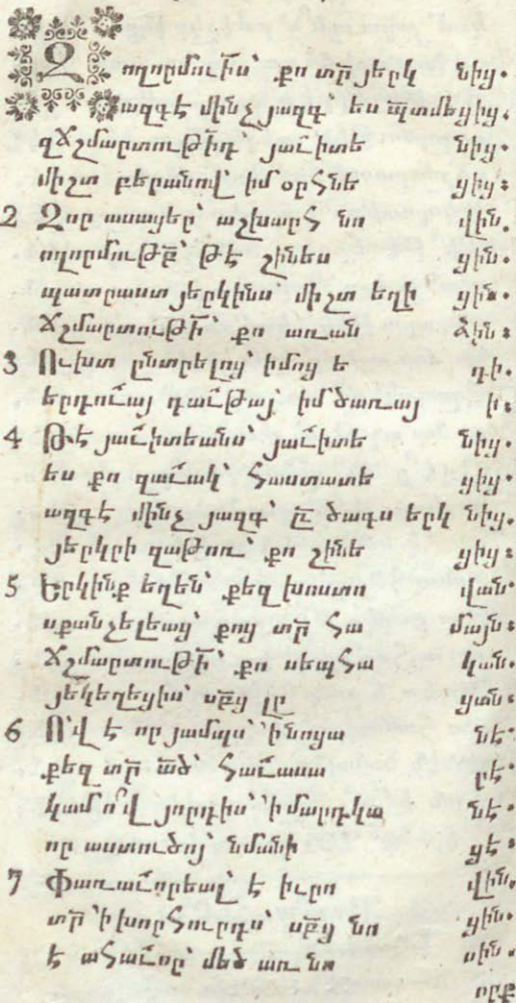 Զողորմութիւնս՝ քո տր̄ յերկ նից.
յազգէ մինչ յազգ՝ ես պ̄տմեցից.
զՃշմարտութիւ̄դ՝ յաւիտե նից.
միշտ բերանով՝ իմ օրհնե ցից։
2 Զոր ասացեր՝ աշխարհ նո վին.
ողորմութբ̄ թէ շինես ցին.
պատրաստ յերկինս միշտ եղի ցին.
Ճշմարտութի̄՝ քո առան ձին։
3 Ուխտ ընտրելոց՝ իմոց ե դի.
երդուայ դաւթայ՝ իմ ծառայ ի։
4 Թէ յաւիտեանս՝ յաւիտե նից.
ես քո զաւակ՝ հաստատե ցից.
ազգէ մինչ յազգ՝ ը̄ ծագս երկ նից.
յերկրի զաթոռ՝ քո շինե ցից։
5 Երկինք եղեն՝ քեզ խոստո վան.
սքանչելեաց՝ քոց տր̄ հա մայն։
Ճշմարտութի̄՝ քո սեպհա կան.
յեկեղեցիս՝ սբ̄ց լը ցան։
6 Ո՛վ է որ յամպս՝ ՚ինոցա նէ.
քեզ տր̄ ա̄ծ՝ հաւասա րէ.
կամ ո՞վ յորդիս՝ ՚ի մարդկա նէ.
որ աստուծոյ՝ նմանի ցէ։
7 Փառաւորեալ՝ է իւրո վին.
տր̄ ՚ի խորհուրդս՝ սբ̄ց նո ցին.
է ահաւոր՝ մեծ առ նո սին.
որք